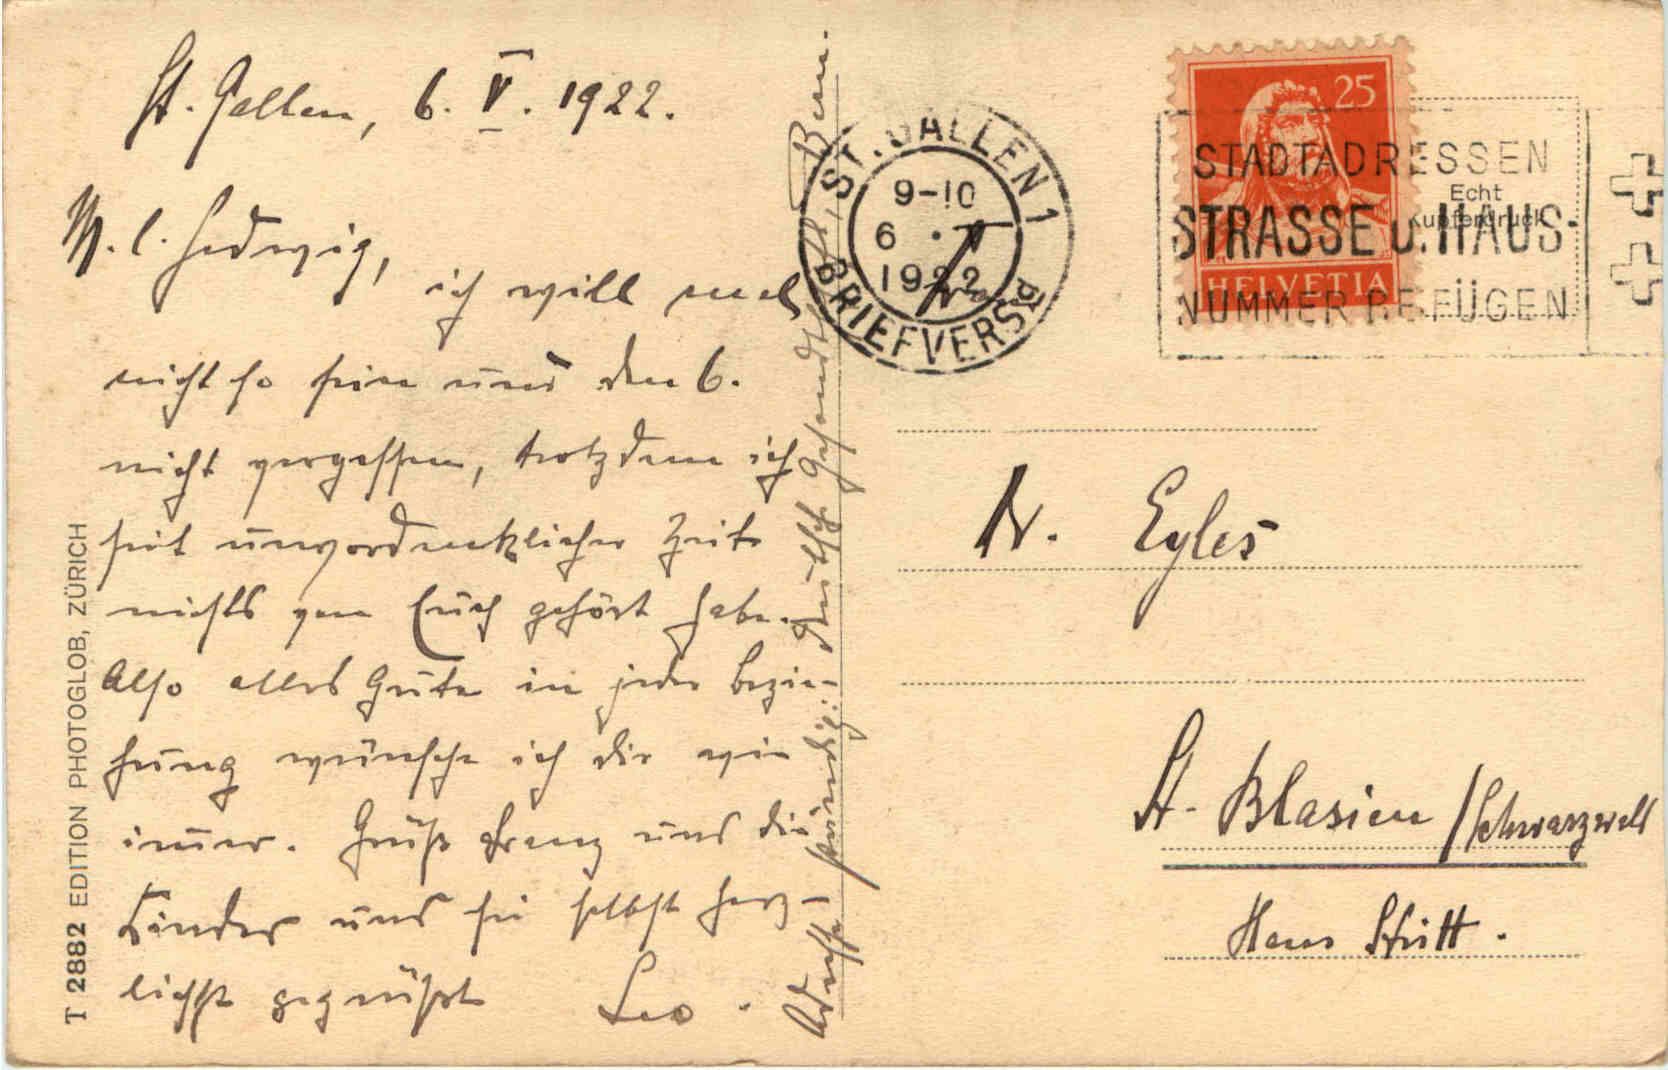 St. Gallen, 6. V. 1922.
M. l. Hedwig,
ich will auch
nicht so sein und den 6.
nicht vergessen, trotzdem ich
seit unvordenklicher Zeit
nichts von Euch gehört habe.
Also alles Gute in jeder Bezie-
hung wünsche ich dir wie
immer. Grüß Franz und die
Kinder und sei selbst herz-
lichst gegrüßt Leo.
Adresse ständig: Deutsche Gesandtschaft, Bern.
T 2882 EDITION PHOTOGLOB, ZÜRICH
ST. GALLEN 1
9-10
6. V
1922
BRIEFVERSD
25
HELVETIA
STADTADRESSEN
STRASSE U. HAUS-
NUMMER BEIFÜGEN
Echt
Kupferdruck
Dr. Eyles
St. Blasien / Schwarzwald
Haus